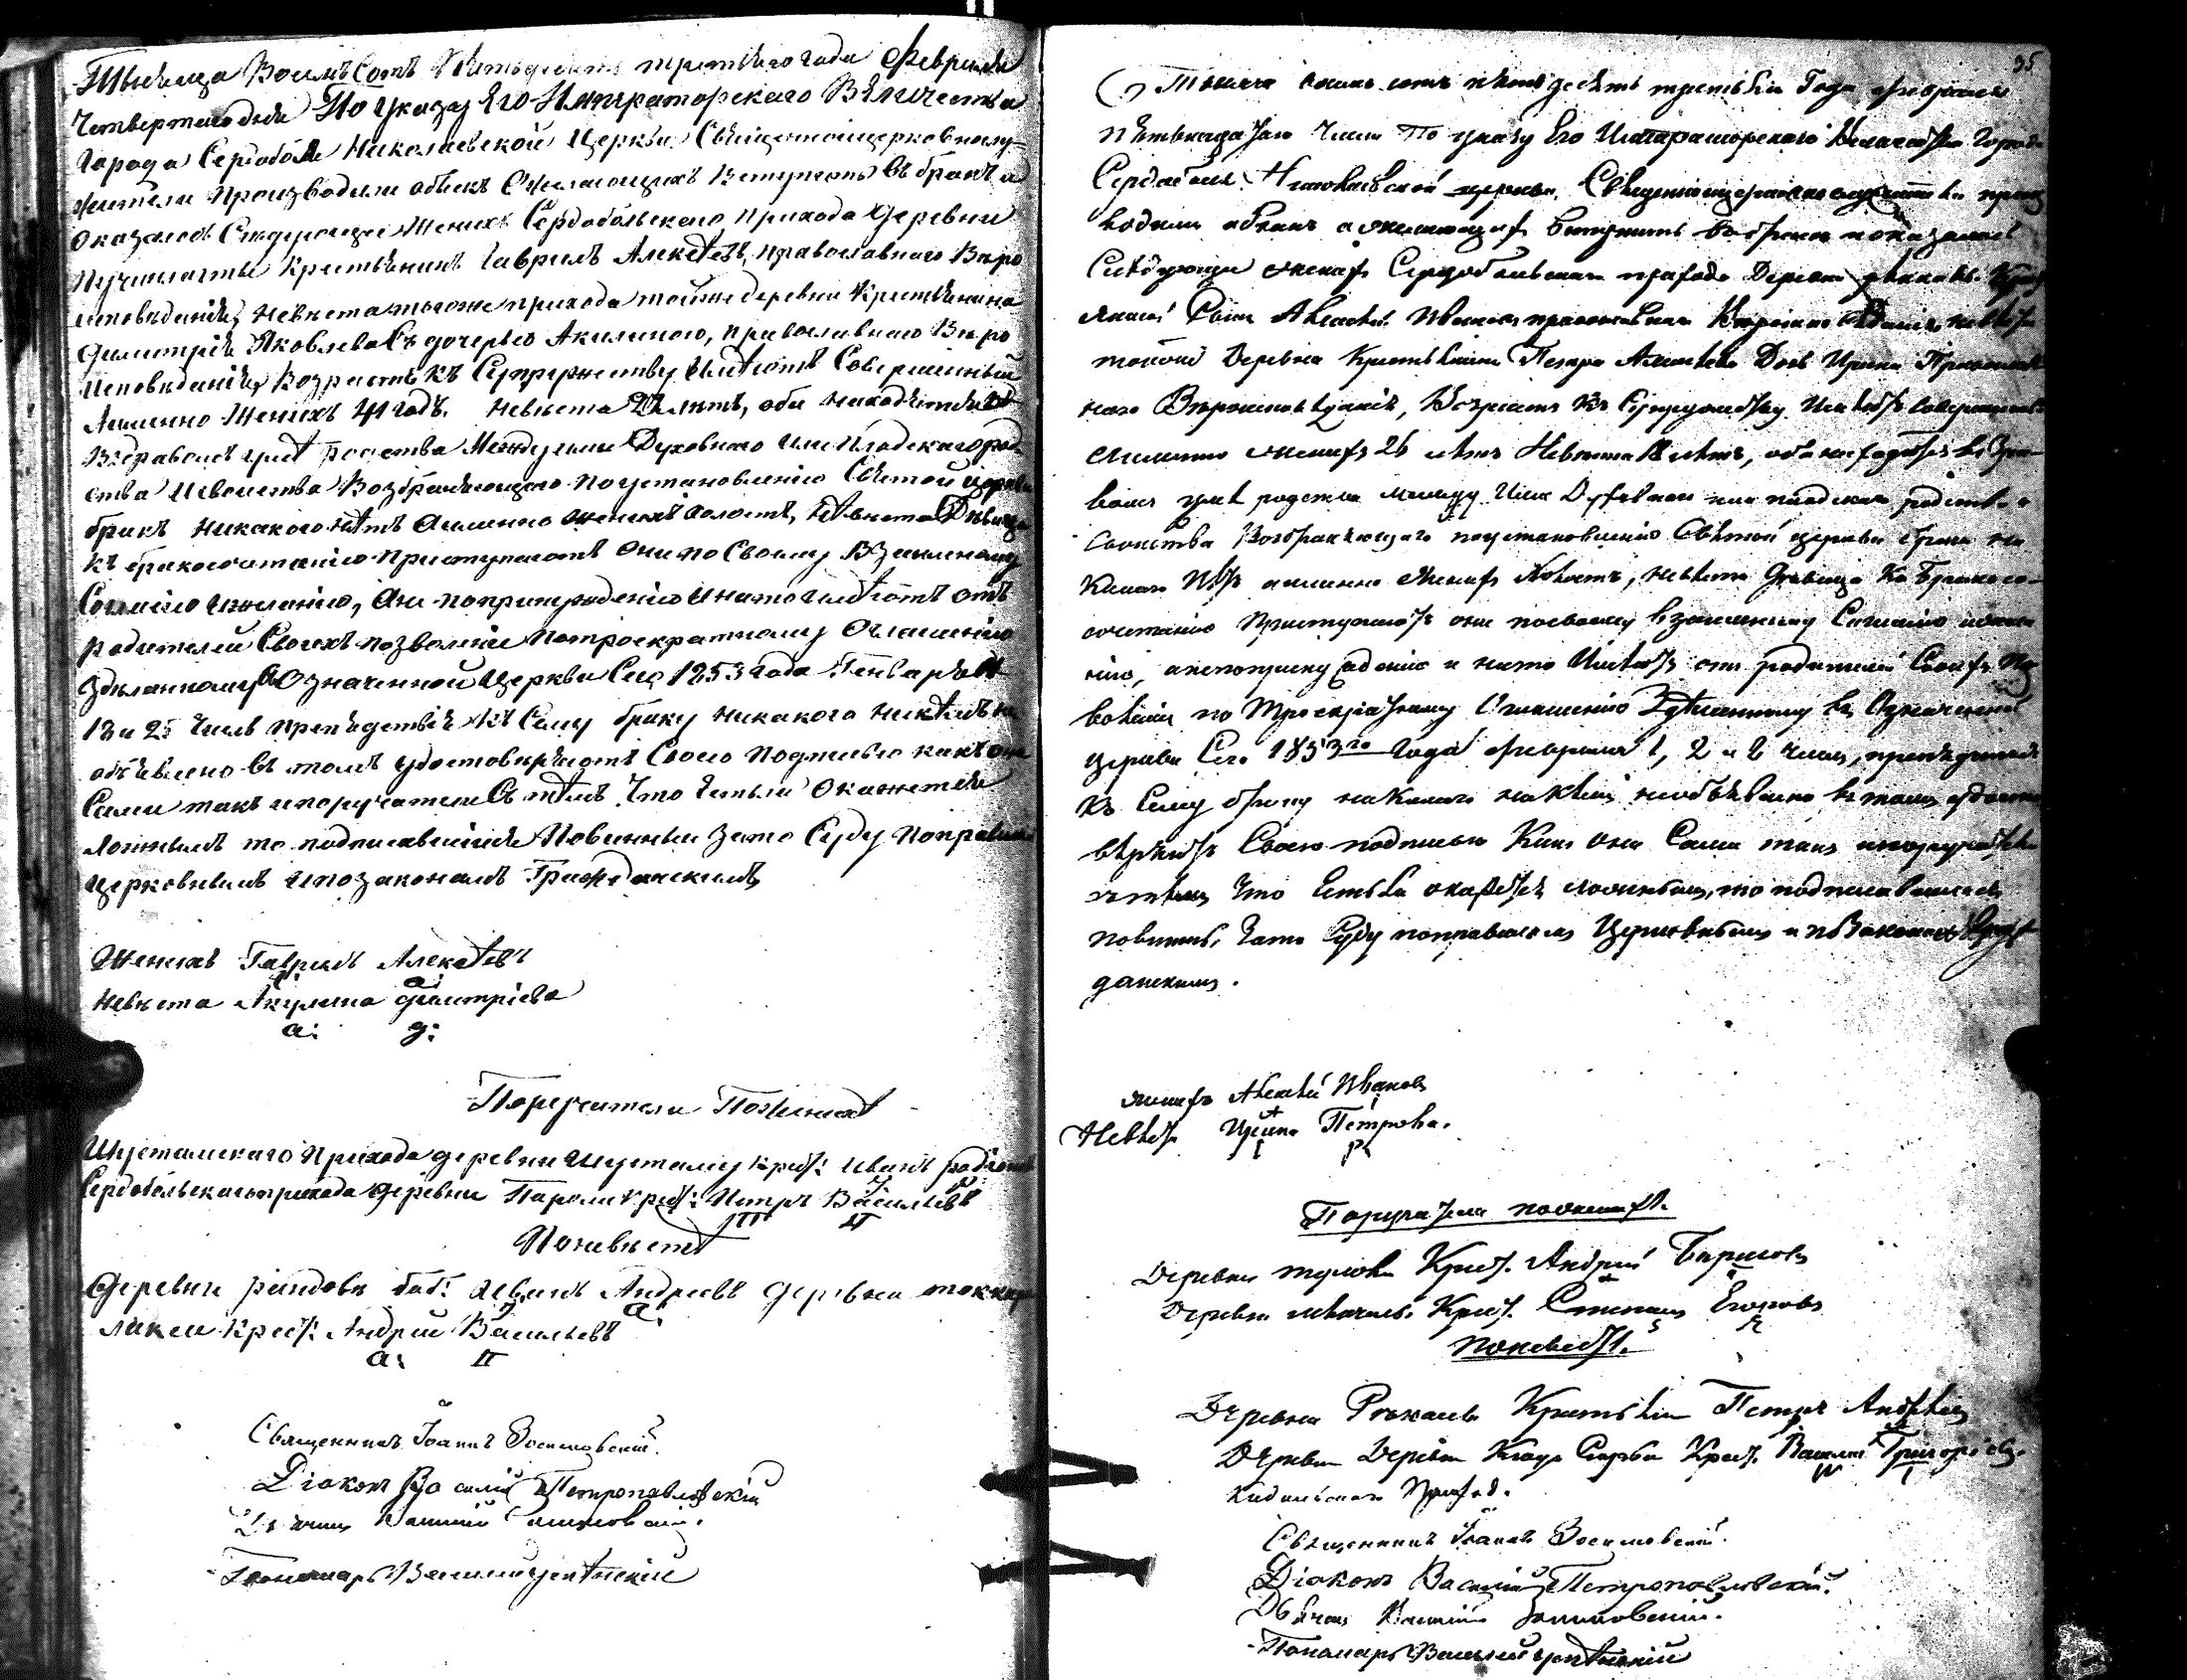 Тысяща Восемъ Сотъ Пятьдесятъ третьяго года Февраля
Четвертаго дня По указу Его Императорскаго Величества
города Сердоболя Николаевской Церкви Священноцерковнослу=
жители Производили обыскъ О желающихъ Вступить въ бракъ и
оказалось Следующее Женихъ Сердобольскаго Прихода деревни
крестьянинъ Гаврилъ Алексѣевъ, православнаго Веро
исповѣданія, невѣста тогоже прихода тойже деревни Крестьянина
Димитрія Яковлева Съ дочерью Акилиною, православнаго Веро
исповѣданія, Возрастъ къ Супружеству Имѣютъ Совершенный
Аименно Женихъ 41 годъ. Невѣста лѣтъ, оба находятся въ
Здравомъ умѣ родства Между ими Духовнаго или Плодскаго род
ства и Свойства Возбраняющаго по установленію Святой церкви
бракъ никакого нѣтъ Аименно женихъ холостъ, невѣста Дѣвица
къ бракосочетанію приступаютъ Они по Своему Взаимному
Согласію и желанію, Ане попринужденію и на то имѣютъ отъ
родителей Своихъ позволеніе По троекратному Оглашенію
Здѣланному въ Означенной Церкви Сего 1853 года Генваря
18 и 25 Числъ препядствія къ Сему браку никакого никѣмъ не
объявлено въ томъ удостовѣряютъ Своею Подписью какъ они
Сами такъ и поручатели Съ тѣмъ, Что Естьли Окажется
ложнымъ то подписавшійся Повинны за то Суду По правиламъ
Церковнымъ и по законамъ Гражданскимъ
Женихъ Гаврилъ Алексѣевъ
Невѣста Акулина Димитріева
а: д:
Поручители По Женихѣ
прихода деревни Крест: Иванъ
Сердобольскаго прихода деревни Крест: Петръ Васильевъ
По невѣстѣ
Деревни Андреевъ деревни
Крест: Андрей Васильевъ
а:
Священникъ Іоаннъ Зосимовскій.
Діаконъ Василій Петропавловскій
Дьячекъ Василій
Пономарь Василій
35
Тысяча восемь сотъ пятьдесятъ третьяго Года февраля
пятьнадцатаго Числа По указу Его Императорскаго Величества Города
Сердоболя Николаевской церкви Священноцерковнослужители произ
водили обыскъ о желающихъ вступить въ бракъ и оказалось
Слѣдующее женихъ Сердобольскаго прихода Деревни
Алексѣй Ивановъ православнаго Вероисповѣданія, невѣста
тойже Деревни Крестьянина Петра Дочь Ирина Православ
наго Вѣроисповѣданія, Возрастъ къ Супружеству Имѣютъ Совершенный
Аименно женихъ 26 лѣтъ Невѣста лѣтъ, оба находятся въ Здра
вомъ умѣ родства между Ими Духовнаго или плодскаго родства и
Свойства Возбраняющаго по установленію Святой церкви бракъ ни
какого нѣтъ аименно Женихъ Холостъ, невѣста Дѣвица Къ Бракосо
четанію Приступаютъ они по своему взаимному Согласію и жела
нію, а не по принужденію и на то Имѣютъ отъ родителей Своихъ По
воленіе по Троекратному Оглашенію Здѣланному въ Означенной
церкви Сего 1853го Года февраля 1, 2 и 8 числъ, препядствія
къ Сему браку никакого никѣмъ необъявлено въ томъ удосто
вѣряютъ Своею подписью Какъ они Сами такъ и поручатели
съ тѣмъ Что Естьли окажется ложнымъ, то подписавшіеся
повинны за то Суду по правиламъ Церковнымъ и по Законамъ Граж
данскимъ.
женихъ Алексѣй Ивановъ
Невѣста Ирина Петрова.
Поручатели по женихѣ.
Деревни Крест. Андрей Борисовъ
Деревни Крест. Степанъ Егоровъ
по невѣстѣ.
Деревни Крестьянинъ Петръ Андреевъ
Деревни Крест. Василій Григорьевъ.
Прихода.
Священникъ Іоаннъ Зосимовскій.
Діаконъ Василій Петропавловскій.
Дьячекъ Василій
Пономарь Василій